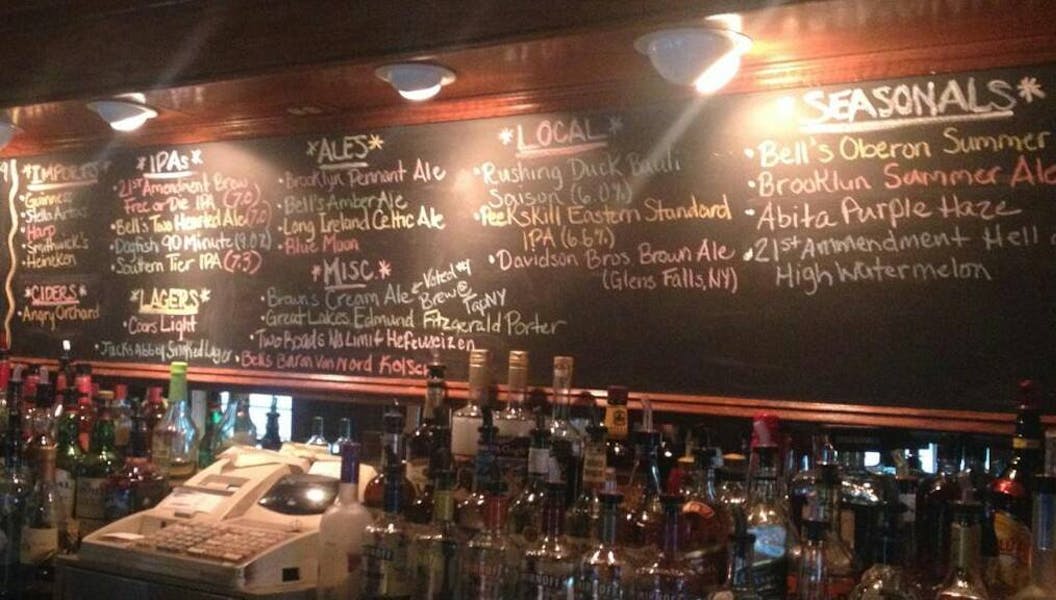 *IMPORTS*
• Guinness
• Stella Artois
• Harp
• Smithwick's
• Heineken
*CIDERS*
• Angry Orchard
*IPAs*
• 21st Amendment Brew
Free or Die IPA (7.0)
• Bell's Two Hearted Ale (7.0)
• Dogfish 90 Minute (9.0%)
• Southern Tier IPA (7.3)
*LAGERS*
• Coors Light
• Jacks Abby Smoked Lager
*ALES*
• Brooklyn Pennant Ale
• Bell's Amber Ale
• Long Ireland Celtic Ale
• Blue Moon
*MISC.*
• Brown's Cream Ale
Voted #1
Brew @
TapNY
• Great Lakes Edmund Fitzgerald Porter
• Two Roads No Limit Hefeweizen
• Bell's Baron Von Nord Kolsch
*LOCAL*
• Rushing Duck
Saison (6.0%)
• Peekskill Eastern Standard
IPA (6.6%)
• Davidson Bros Brown Ale
(Glens Falls, NY)
*SEASONALS*
• Bell's Oberon Summer
• Brooklyn Summer Ale
• Abita Purple Haze
• 21st Ammendment Hell
High Watermelon